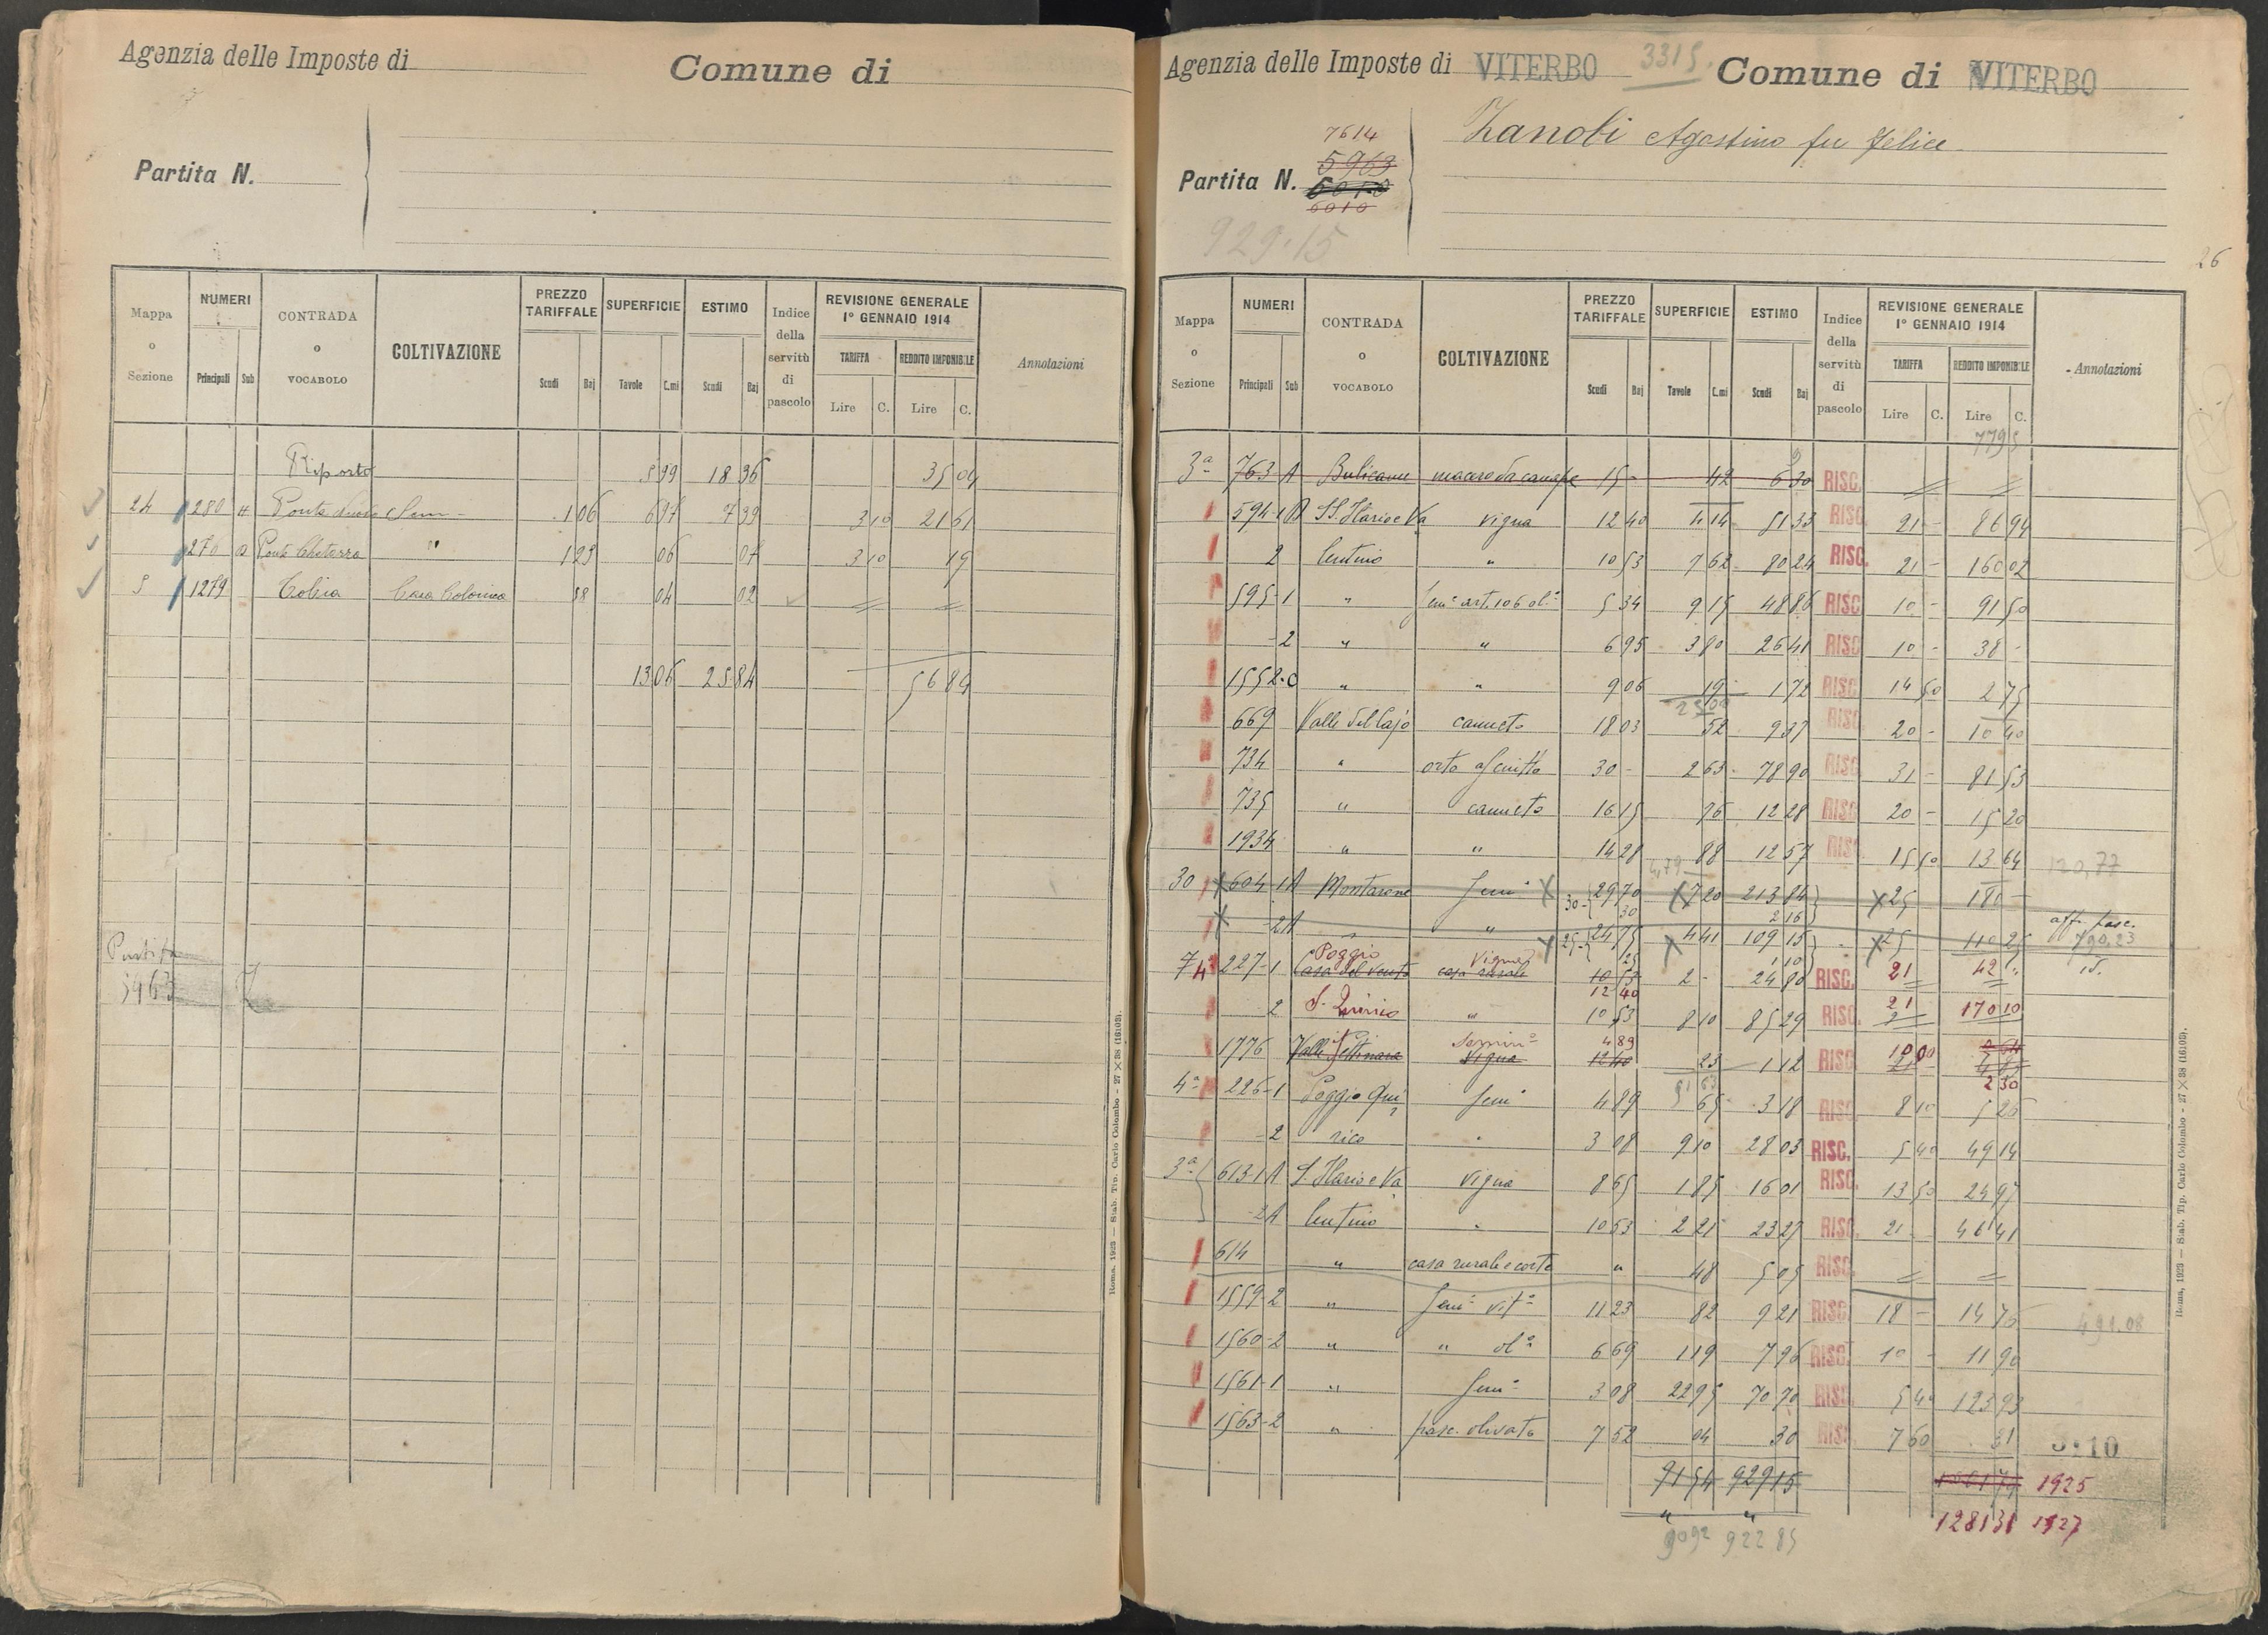 Agenzia delle Imposte di
Comune di
Partita N.
Mappa o Sezione | NUMERI Principali Sub | CONTRADA o VOCABOLO | COLTIVAZIONE | PREZZO TARIFFALE Scudi Baj | SUPERFICIE Tavole C.mi | ESTIMO Scudi Baj | Indice della servitù di pascolo | REVISIONE GENERALE 1º GENNAIO 1914 TARIFFA Lire C. REDDITO IMPONIBILE Lire C. | Annotazioni
Riporto 599 18 36 35 09
24 280 Sem 1 06 697 7 39 3 10 21 61
270 a Ponte " 1 23 06 07 3 10 19
5 1279 Casa Colonica 58 04 02
13 06 25 84 56 89
Partita
5963
Roma, 1923 — Stab. Tip. Carlo Colombo - 27 × 38 (16103).
Agenzia delle Imposte di VITERBO 3315. Comune di VITERBO
7614
Partita N. 5963
6010
6010
Zanobi Agostino fu Felice
929.15
26
Mappa o Sezione | NUMERI Principali Sub | CONTRADA o VOCABOLO | COLTIVAZIONE | PREZZO TARIFFALE Scudi Baj | SUPERFICIE Tavole C.mi | ESTIMO Scudi Baj | Indice della servitù di pascolo | REVISIONE GENERALE 1º GENNAIO 1914 TARIFFA Lire C. REDDITO IMPONIBILE Lire C. | Annotazioni
3ª 763 A Bulicame macero da canape 15 - 42 6 30 RISC.
594-1 B SS. Ilario e Va vigna 12 40 4 14 51 33 RISC. 21 - 86 94
2 lentino " 10 53 7 62 80 24 RISC. 21 - 160 02
595-1 " art. 106 ol.º 5 34 9 15 48 86 RISC. 10 - 91 50
-2 " " 6 95 3 80 26 41 RISC. 10 - 38 -
1552-C " " 9 06 19 1 72 RISC. 14 50 2 75
669 Valle del Cajo canneto 18 03 52 9 37 RISC. 20 - 10 40
734 " orto asciutto 30 - 2 63 78 90 RISC. 31 - 81 53
735 " canneto 16 15 76 12 28 RISC. 20 - 15 20
1934 " " 14 28 88 12 57 RISC. 15 50 13 64 120,77
30 X 604 1A Montarone Semº X 30 - 29 70 30 X 7 20 213 84 2 16 X 25 180 -
X -2A " " X 25 - 24 75 25 X 4 41 109 15 1 10 X 25 110 25 790,23
4ª 227-1 Poggio Casa del vento Vigna casa rurale 10 53 12 40 2 - 24 80 RISC. 21 42 "
2 S. Quirico " 10 53 8 10 85 29 RISC. 21 170 10
1776 Valle Pettinara Seminº Vigna 4 89 12 40 23 1 12 RISC. 10 00 21 - 2 30
4ª 226-1 Poggio Qui Semº 4 89 65 3 18 RISC. 8 10 5 26
-2 rico " 3 08 9 10 28 03 RISC. 5 40 49 14
3ª 613-1 A S. Ilario e Va vigna 8 65 1 85 16 01 RISC. 13 50 24 97
2A lentino " 10 53 2 21 23 27 RISC. 21 - 46 41
614 " casa rurale e corte " 48 5 05 RISC.
1559-2 " Semº vitº 11 23 82 9 21 RISC. 18 - 14 76 491.08
1560-2 " " olº 6 69 1 19 7 96 RISC. 10 - 11 90
1561-1 " Semº 3 08 22 95 70 70 RISC. 5 40 123 93
1563-2 " pasc. olivato 7 52 04 30 RISC. 7 60 31
91 54 929 15 1925
" " 1281 31 1927
90 92 922 85
Roma, 1923 — Stab. Tip. Carlo Colombo - 27 × 38 (16103).